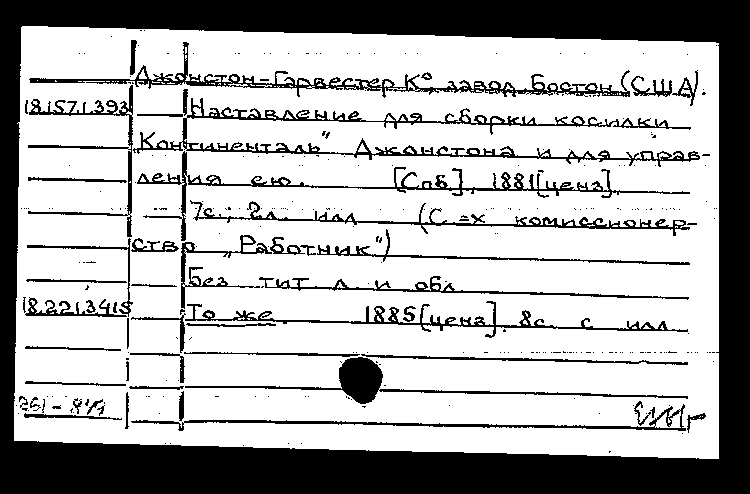 Джонстон-Гарвестер К°, завод. Бостон (США).
18.157.1.393 Наставление для сборки косилки
„Континенталь" Джонстона и для управ-
ления ею. [Спб], 1881 [ценз].
7с.; 2л. илл (С.-х комиссионер-
ство „Работник")
Без тит л и обл
18.221.3.415 То же 1885 [ценз]. 8с. с илл
261-